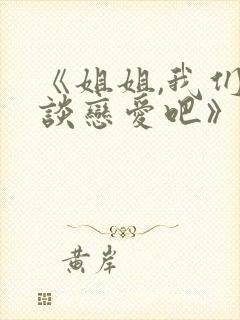 《姐姐,我们
談戀愛吧》
黃岸